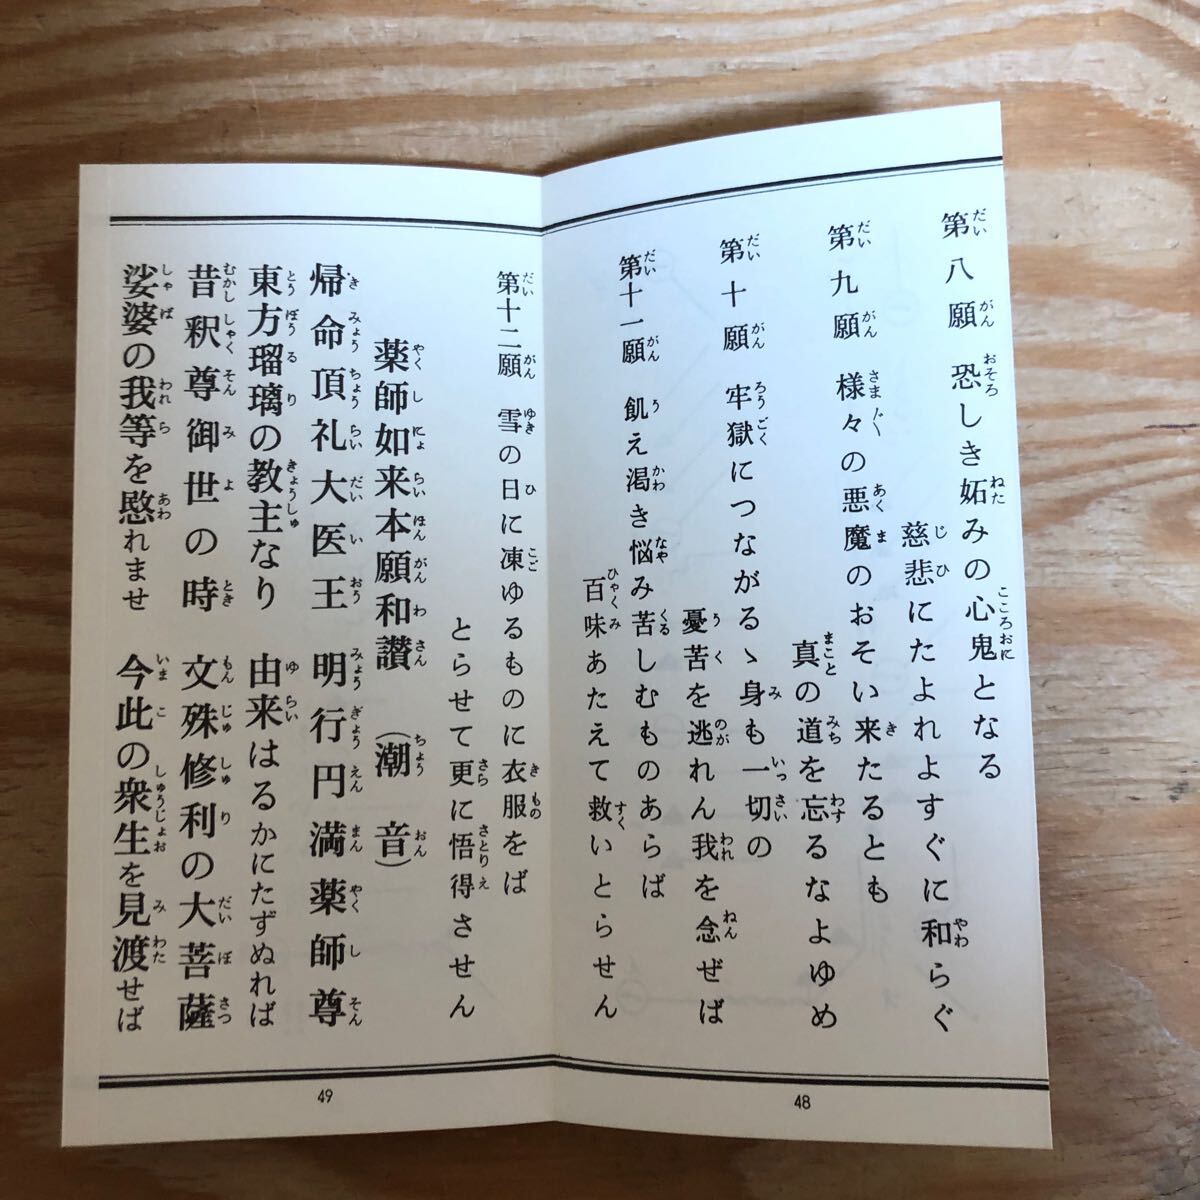 第八願 恐しき妬みの心鬼となる
慈悲にたよれよすぐに和らぐ
第九願 様々の悪魔のおそい来たるとも
真の道を忘るなよゆめ
第十願 牢獄につながるゝ身も一切の
憂苦を逃れん我を念ぜば
第十一願 飢え渇き悩み苦しむものあらば
百味あたえて救いとらせん
48
第十二願 雪の日に凍ゆるものに衣服をば
とらせて更に悟得させん
薬師如来本願和讃 (潮音)
帰命頂礼大医王 明行円満薬師尊
東方瑠璃の教主なり 由来はるかにたずぬれば
昔釈尊御世の時 文殊修利の大菩薩
娑婆の我等を愍れませ 今此の衆生を見渡せば
49